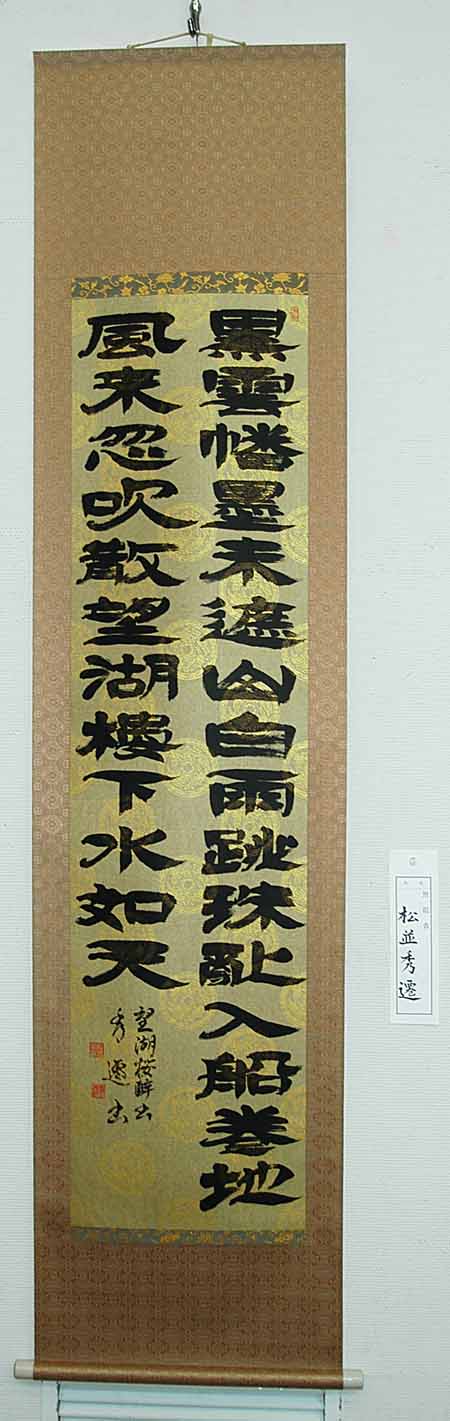 黒雲幡墨未遮山白雨跳珠亂入船巻地
風来忽吹散望湖樓下水如天
望湖楼酔書
秀遷書
松並秀遷